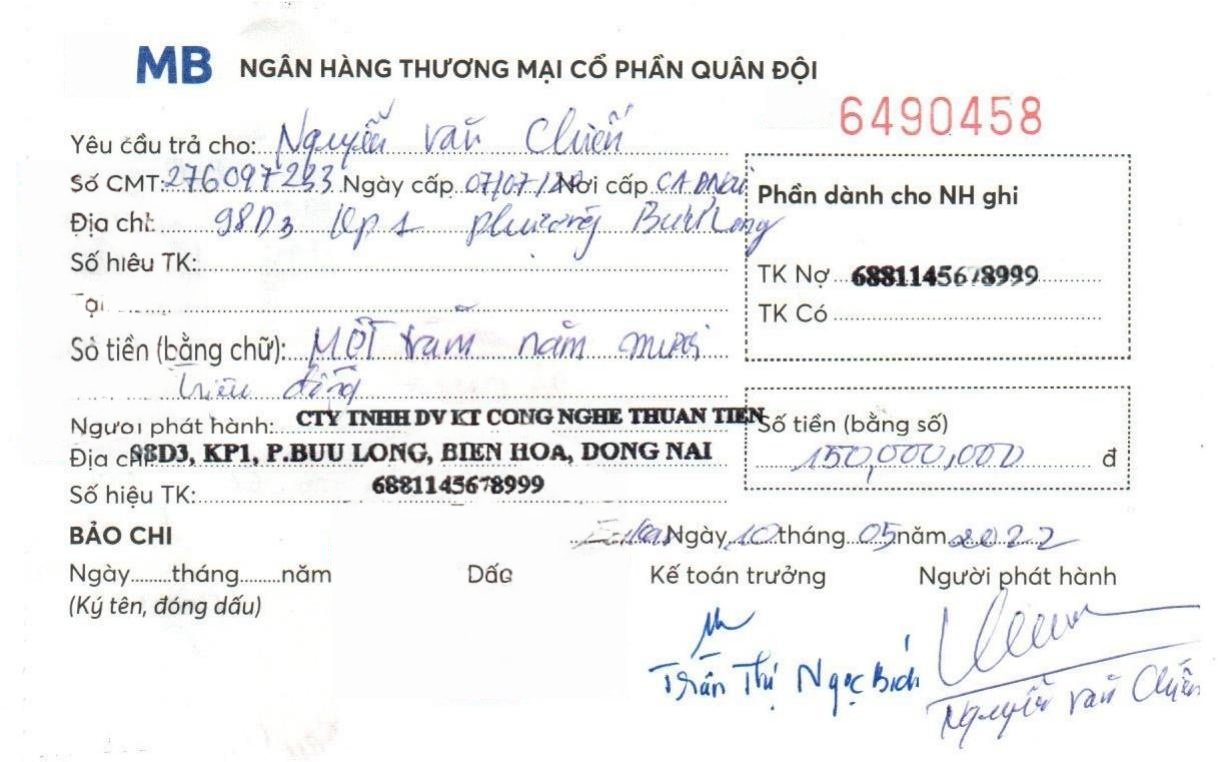 MB NGÂN HÀNG THƯƠNG MẠI CỔ PHẦN QUÂN ĐỘI
6490458
Yêu cầu trả cho: Nguyễn Văn Chiến
Số CMT: 276097233 Ngày cấp 07/07/ Nơi cấp CA ĐNai
Địa chỉ: 98D3 Kp 1 phường Bửu Long
Số hiêu TK:
Số tiền (bằng chữ): Một trăm năm mươi
triệu đồng
Người phát hành: CTY TNHH DV KT CONG NGHE THUAN TIEN
Địa chỉ: 98D3, KP1, P.BUU LONG, BIEN HOA, DONG NAI
Số hiệu TK: 6881145678999
Phần dành cho NH ghi
TK Nợ 6881145678999
TK Có
Số tiền (bằng số)
150,000,000 đ
BẢO CHI
Ngày 10 tháng 05 năm 2022
Ngày........tháng........năm
(Ký tên, đóng dấu)
Dấu
Kế toán trưởng
Trần Thị Ngọc Bích
Người phát hành
Nguyễn Văn Chiến